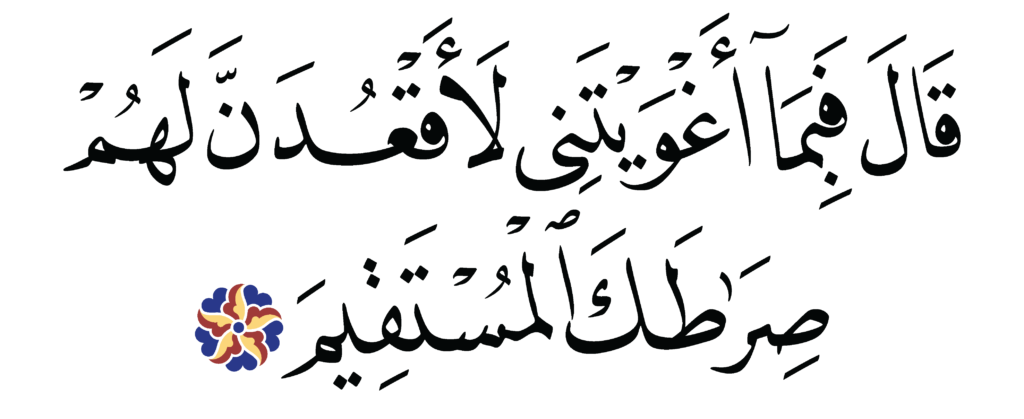 قَالَ فَبِمَآ أَغْوَيْتَنِى لَأَقْعُدَنَّ لَهُمْ
صِرَٰطَكَ ٱلْمُسْتَقِيمَ